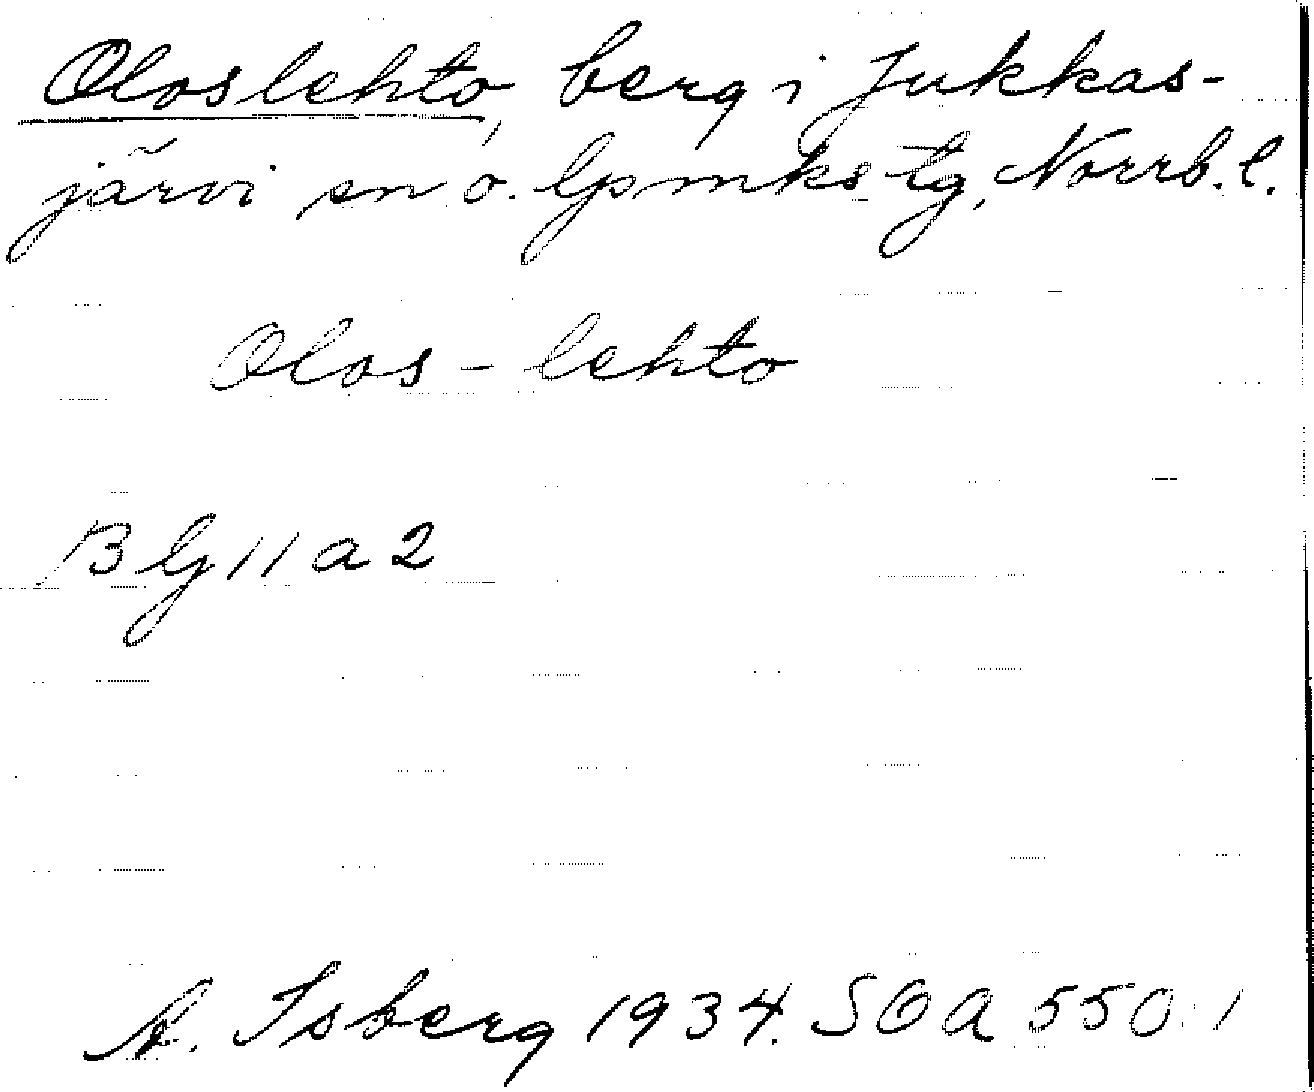 Oloslehto, berg i Jukkas-
järvi sn o. lpmks tg, Norrb. l.
Olos - lehto
Bl 11 a 2
A. Isberg 1934. SOA 550:1